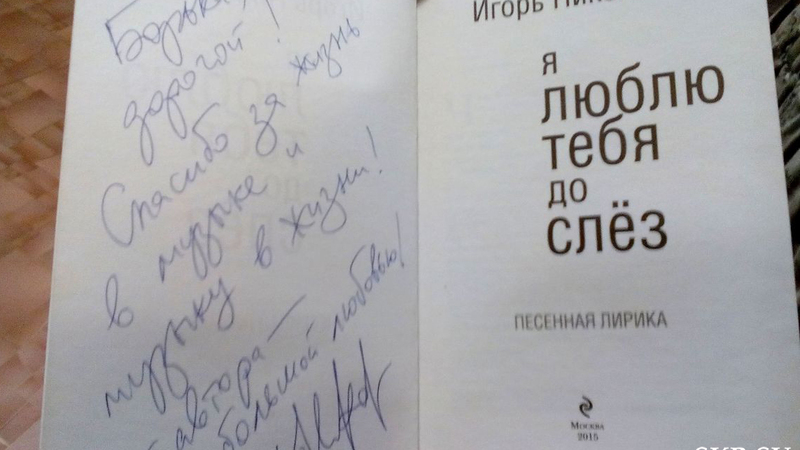 Борька,
дорогой!
Спасибо за жизнь
в музыке и
музыку в жизни!
автора —
большой любовью!
Игорь
я
люблю
тебя
до
слёз
ПЕСЕННАЯ ЛИРИКА
МОСКВА
2015